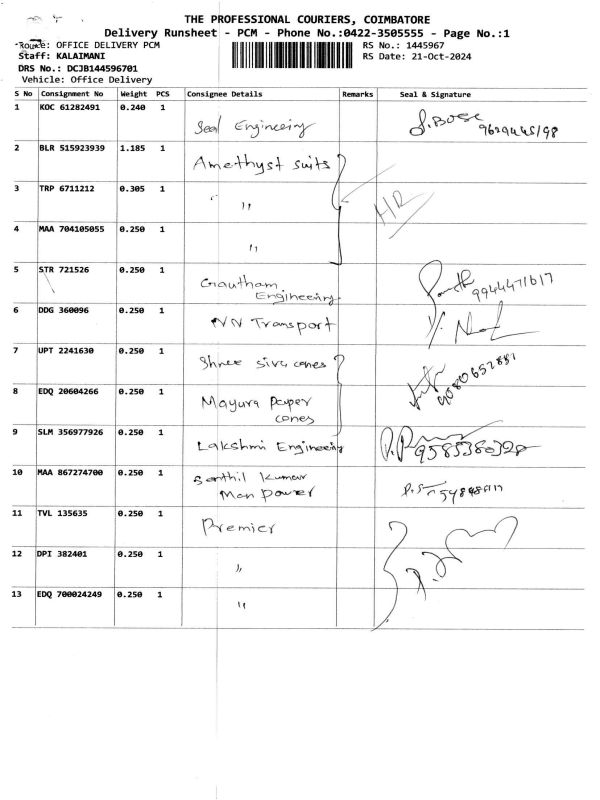 THE PROFESSIONAL COURIERS, COIMBATORE
Delivery Runsheet - PCM - Phone No.:0422-3505555 - Page No.:1
Route: OFFICE DELIVERY PCM RS No.: 1445967
Staff: KALAIMANI RS Date: 21-Oct-2024
DRS No.: DCJB144596701
Vehicle: Office Delivery
S No Consignment No Weight PCS Consignee Details Remarks Seal & Signature
1 KOC 61282491 0.240 1 Seal Engineering S. BOSE
2 BLR 515923939 1.185 1 Amethyst suits
3 TRP 6711212 0.305 1 " HR
4 MAA 704105055 0.250 1 "
5 STR 721526 0.250 1 Gautham
Engineering 9944471617
6 DDG 360096 0.250 1 NN Transport
7 UPT 2241630 0.250 1 Shree siva cones
8 EDQ 20604266 0.250 1 Mayura paper
cones
9 SLM 356977926 0.250 1 Lakshmi Engineering 9585380320
10 MAA 867274700 0.250 1 Senthil kumar
Man power
11 TVL 135635 0.250 1 Premier
12 DPI 382401 0.250 1 "
13 EDQ 700024249 0.250 1 "